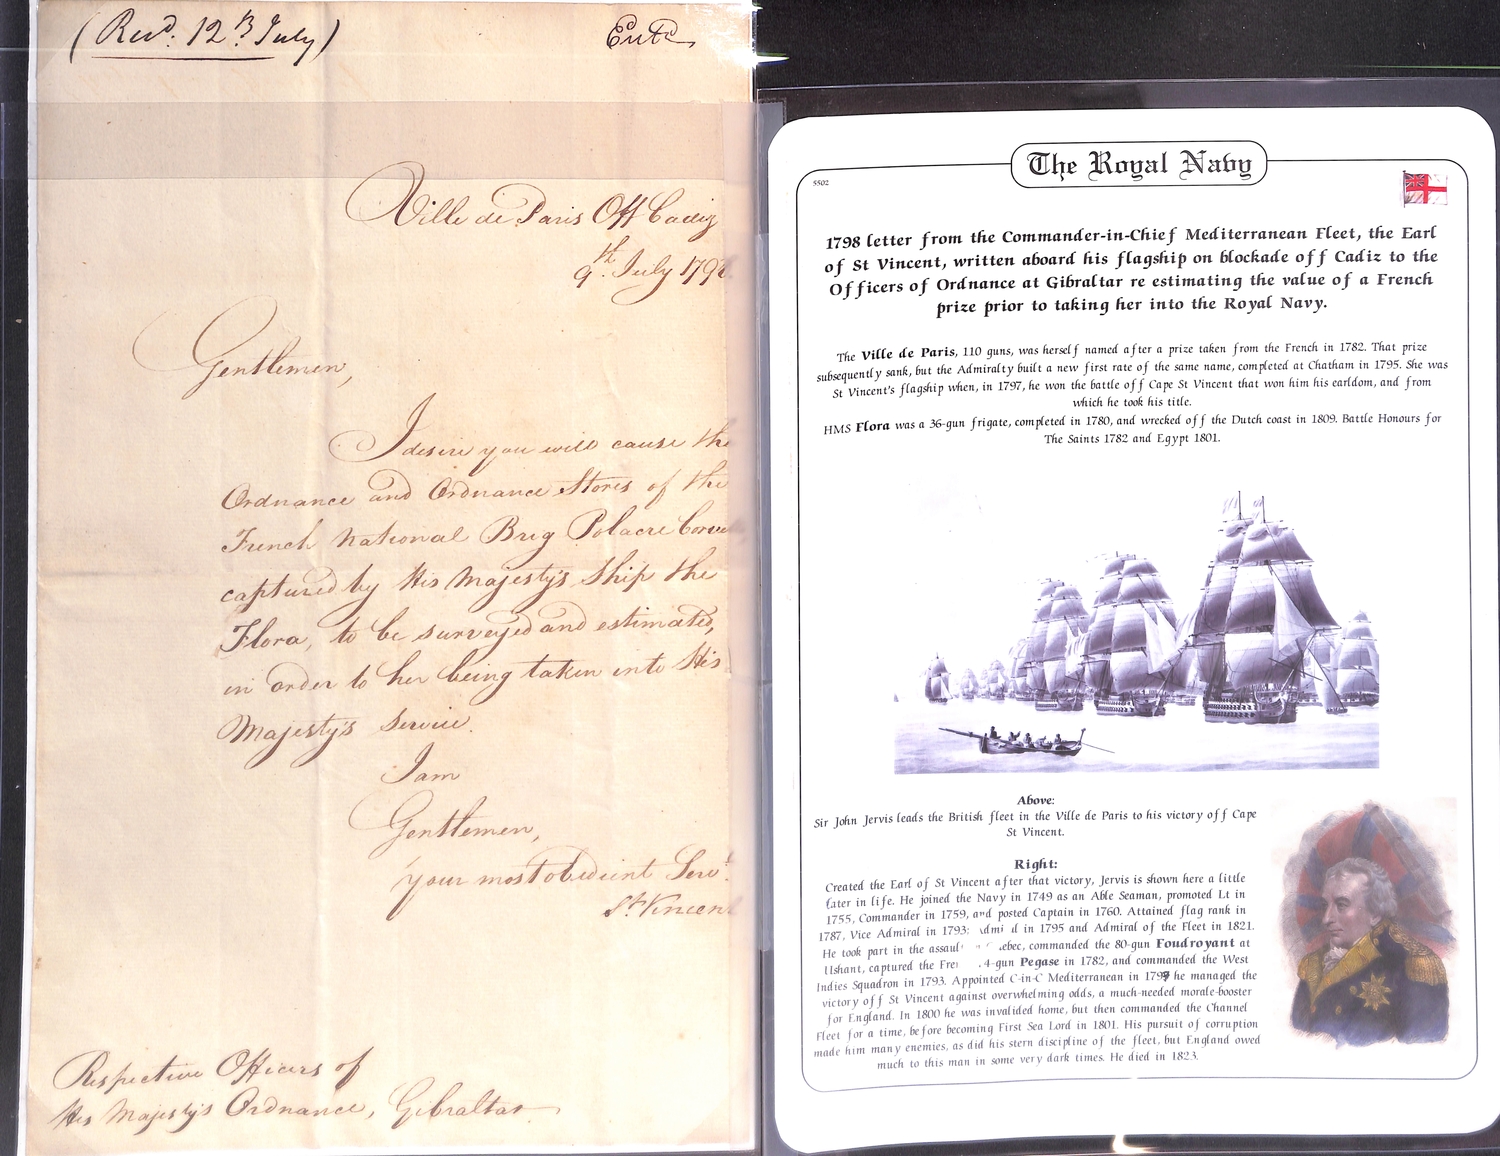 (Recd. 12th July)
Entd
Ville de Paris Off Cadiz
9th July 179
Gentlemen,
I desire you will cause the
Ordnance and Ordnance Stores of the
French National Brig Polacre
captured by His Majesty's Ship the
Flora, to be surveyed and estimated,
in order to her being taken into His
Majesty's Service.
I am
Gentlemen,
Your most obedient Servt
St Vincent
Respective Officers of
His Majesty's Ordnance, Gibraltar
The Royal Navy
5502
1798 letter from the Commander-in-Chief Mediterranean Fleet, the Earl
of St Vincent, written aboard his flagship on blockade off Cadiz to the
Officers of Ordnance at Gibraltar re estimating the value of a French
prize prior to taking her into the Royal Navy.
The Ville de Paris, 110 guns, was herself named after a prize taken from the French in 1782. That prize
subsequently sank, but the Admiralty built a new first rate of the same name, completed at Chatham in 1795. She was
St Vincent's flagship when, in 1797, he won the battle off Cape St Vincent that won him his earldom, and from
which he took his title.
HMS Flora was a 36-gun frigate, completed in 1780, and wrecked off the Dutch coast in 1809. Battle Honours for
The Saints 1782 and Egypt 1801.
Above:
Sir John Jervis leads the British fleet in the Ville de Paris to his victory off Cape
St Vincent.
Right:
Created the Earl of St Vincent after that victory, Jervis is shown here a little
later in life. He joined the Navy in 1749 as an Able Seaman, promoted Lt in
1755, Commander in 1759, and posted Captain in 1760. Attained flag rank in
1787, Vice Admiral in 1793; in 1795 and Admiral of the Fleet in 1821.
He took part in the commanded the 80-gun Foudroyant at
Ushant, captured the Pegase in 1782, and commanded the West
Indies Squadron in 1793. Appointed C-in-C Mediterranean in he managed the
victory off St Vincent against overwhelming odds, a much-needed morale-booster
for England. In 1800 he was invalided home, but then commanded the Channel
Fleet for a time, before becoming First Sea Lord in 1801. His pursuit of corruption
made him many enemies, as did his stern discipline of the fleet, but England owed
much to this man in some very dark times. He died in 1823.